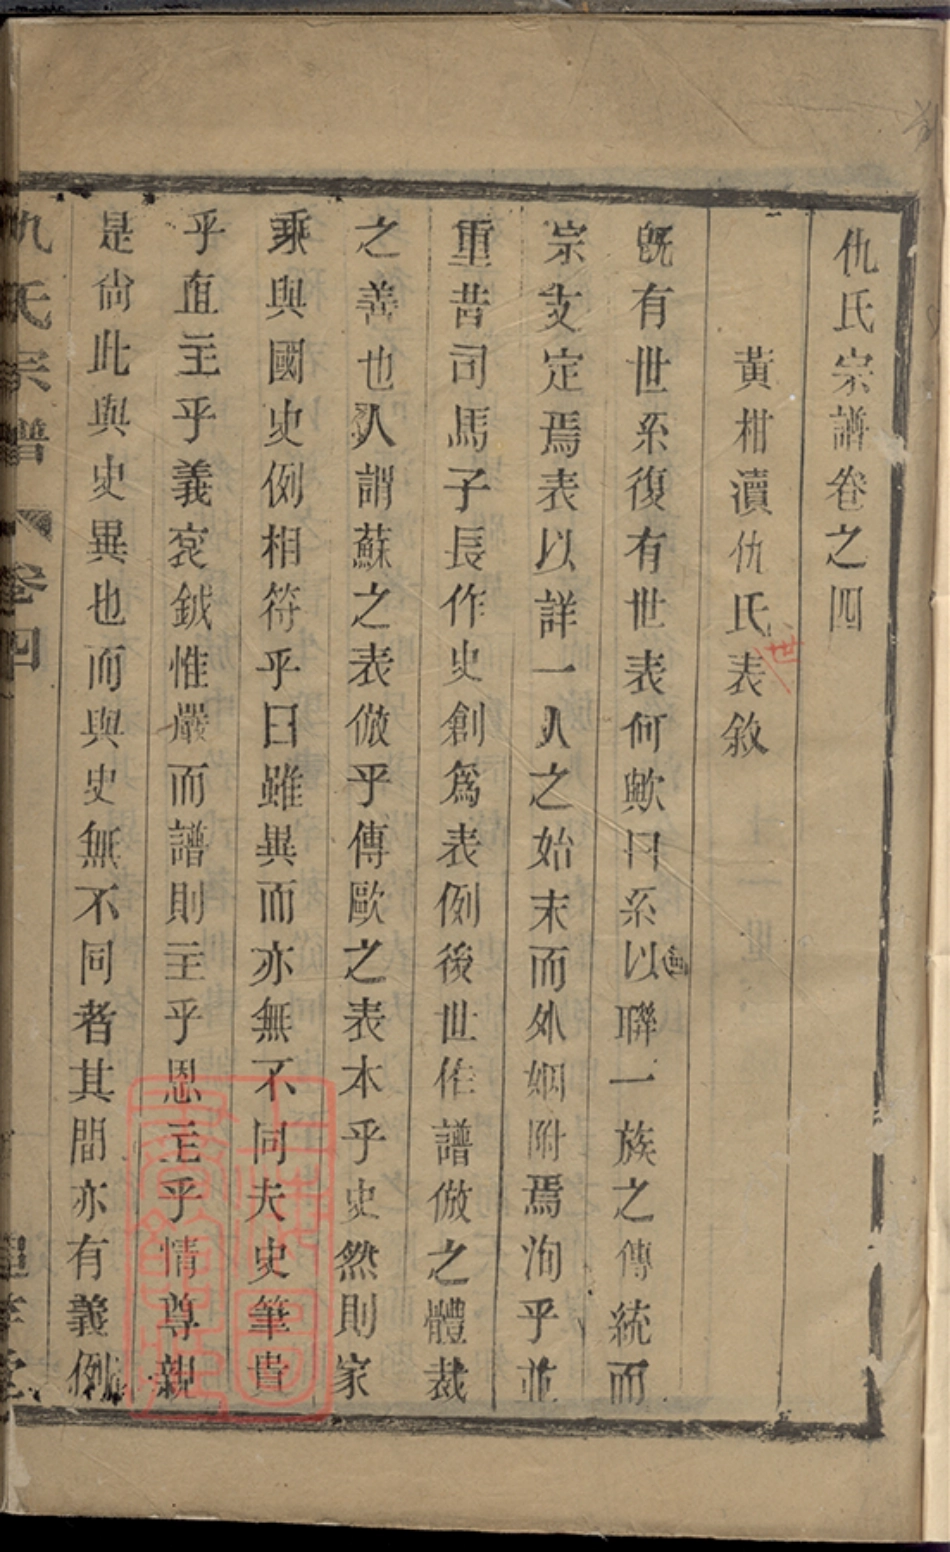 仇氏宗譜卷之四
黃柑瀆仇氏表敘
世
旣有世系復有世表何歟曰系以聯一族之傳統而
宗支定焉表以詳一人之始末而外姻附焉洵乎並
重昔司馬子長作史創爲表例後世作譜倣之體裁
之善也人謂蘇之表倣乎傳歐之表本乎史然則家
乘與國史例相符乎曰雖異而亦無不同夫史筆貴
乎直主乎義袞鉞惟嚴而譜則主乎恩主乎情尊親
是尙此與史異也而與史無不同者其間亦有義例
仇氏宗譜 卷四